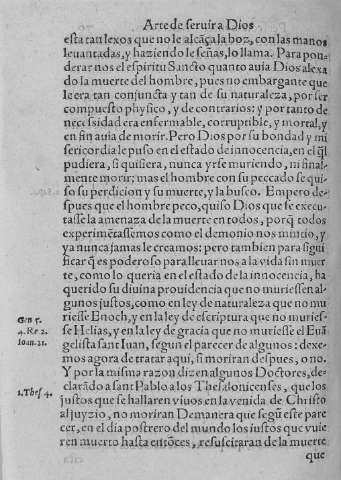 Arte de seruir a Dios
esta tan lexos que no le alcãça la boz, con las manos
leuantadas, y haziendo le señas, lo llama. Para pon-
derar nos el espiritu Sancto quanto auia Dios alexa
do la muerte del hombre, pues no embargante que
le era tan conjuncta y tan de su naturaleza, por ser
compuesto physico, y de contrarios: y por tanto de
necessidad era enfermable, corruptible, y mortal, y
en fin auia de morir. Pero Dios por su bondad y mi
sericordia le puso en el estado de innocencia, en el q̃l
pudiera, si quisiera, nunca yrse muriendo, ni final-
mente morir; mas el hombre con su peccado se quí-
so su perdicion y su muerte, y la busco. Empero de-
spues que el hombre peco, quiso Dios que se execu-
tasse la amenaza de la muerte en todos, porq̃ todos
experimẽtassemos como el demonio nos mintio, y
ya nunca jamas le creamos: pero tambien para signi
ficar q̃ es poderoso para lleuar nos a la vida sin muer
te, como lo queria en el estado de la innocencia, ha
querido su diuina prouidencia que no muriessen al-
gunos justos, como en ley de naturaleza que no mu
riesse Enoch, y en la ley de escriptura que no muries-
se Helias, y en la ley de gracia que no muriesse el Euã
gelista sant Iuan, segun el parecer de algunos: dexe-
mos agora de tratar aqui, si moriran despues, o no.
Y por la misma razon dizen algunos Doctores, de-
clarãdo a sant Pablo a los Thesalonicenses, que los
justos que se hallaren viuos en la venida de Christo
al juyzio, no moriran De manera que segũ este pare
cer, en el dia postrero del mundo los justos que vuie
ren muerto hasta entõces, resuscitaran de la muerte
que
Gen 5.
4. Re 2.
Ioan. 21.
1. Thes 4.